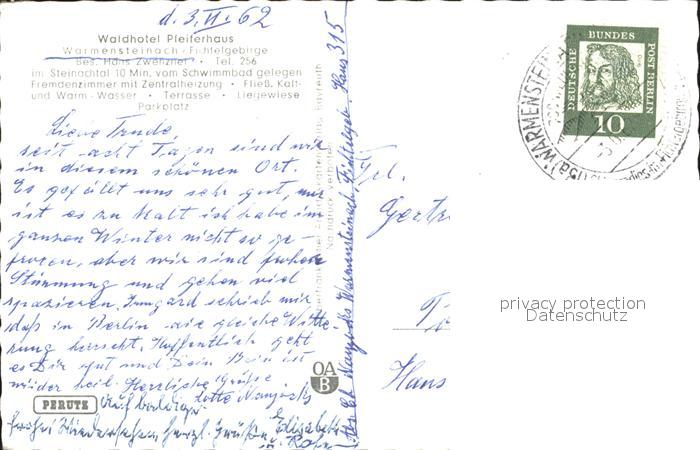 d. 3. II. 62
Waldhotel Pfeiferhaus
Warmensteinach - Fichtelgebirge
Bes. Hans Zwenzner • Tel. 256
im Steinachtal 10 Min. vom Schwimmbad gelegen
Fremdenzimmer mit Zentralheizung • Fließ. Kalt-
und Warm-Wasser • Terrasse • Liegewiese
Parkplatz
Liebe Trude,
seit acht Tagen sind wir
in diesem schönen Ort.
Es gefällt uns sehr gut, nur
ist es zu kalt ich habe im
ganzen Winter nicht so ge-
froren, aber wir sind frohen
Stimmung und gehen viel
spazieren. Irmgard schrieb mir
daß in Berlin die gleiche Witte-
rung herrscht. Hoffentlich geht
es Dir gut und Dein Bein ist
wieder heil. Herzliche Grüße
Lotte
PERUTZ
Auf baldiges
frohes Wiedersehen herzl. Grüße
Elisabeth
Warmensteinach, Fichtelgeb. Haus 315
Nachdruck verboten
OA
B
Frl.
Gertr
Haus
DEUTSCHE BUNDES POST BERLIN
10
WARMENSTEIN
privacy protection
Datenschutz